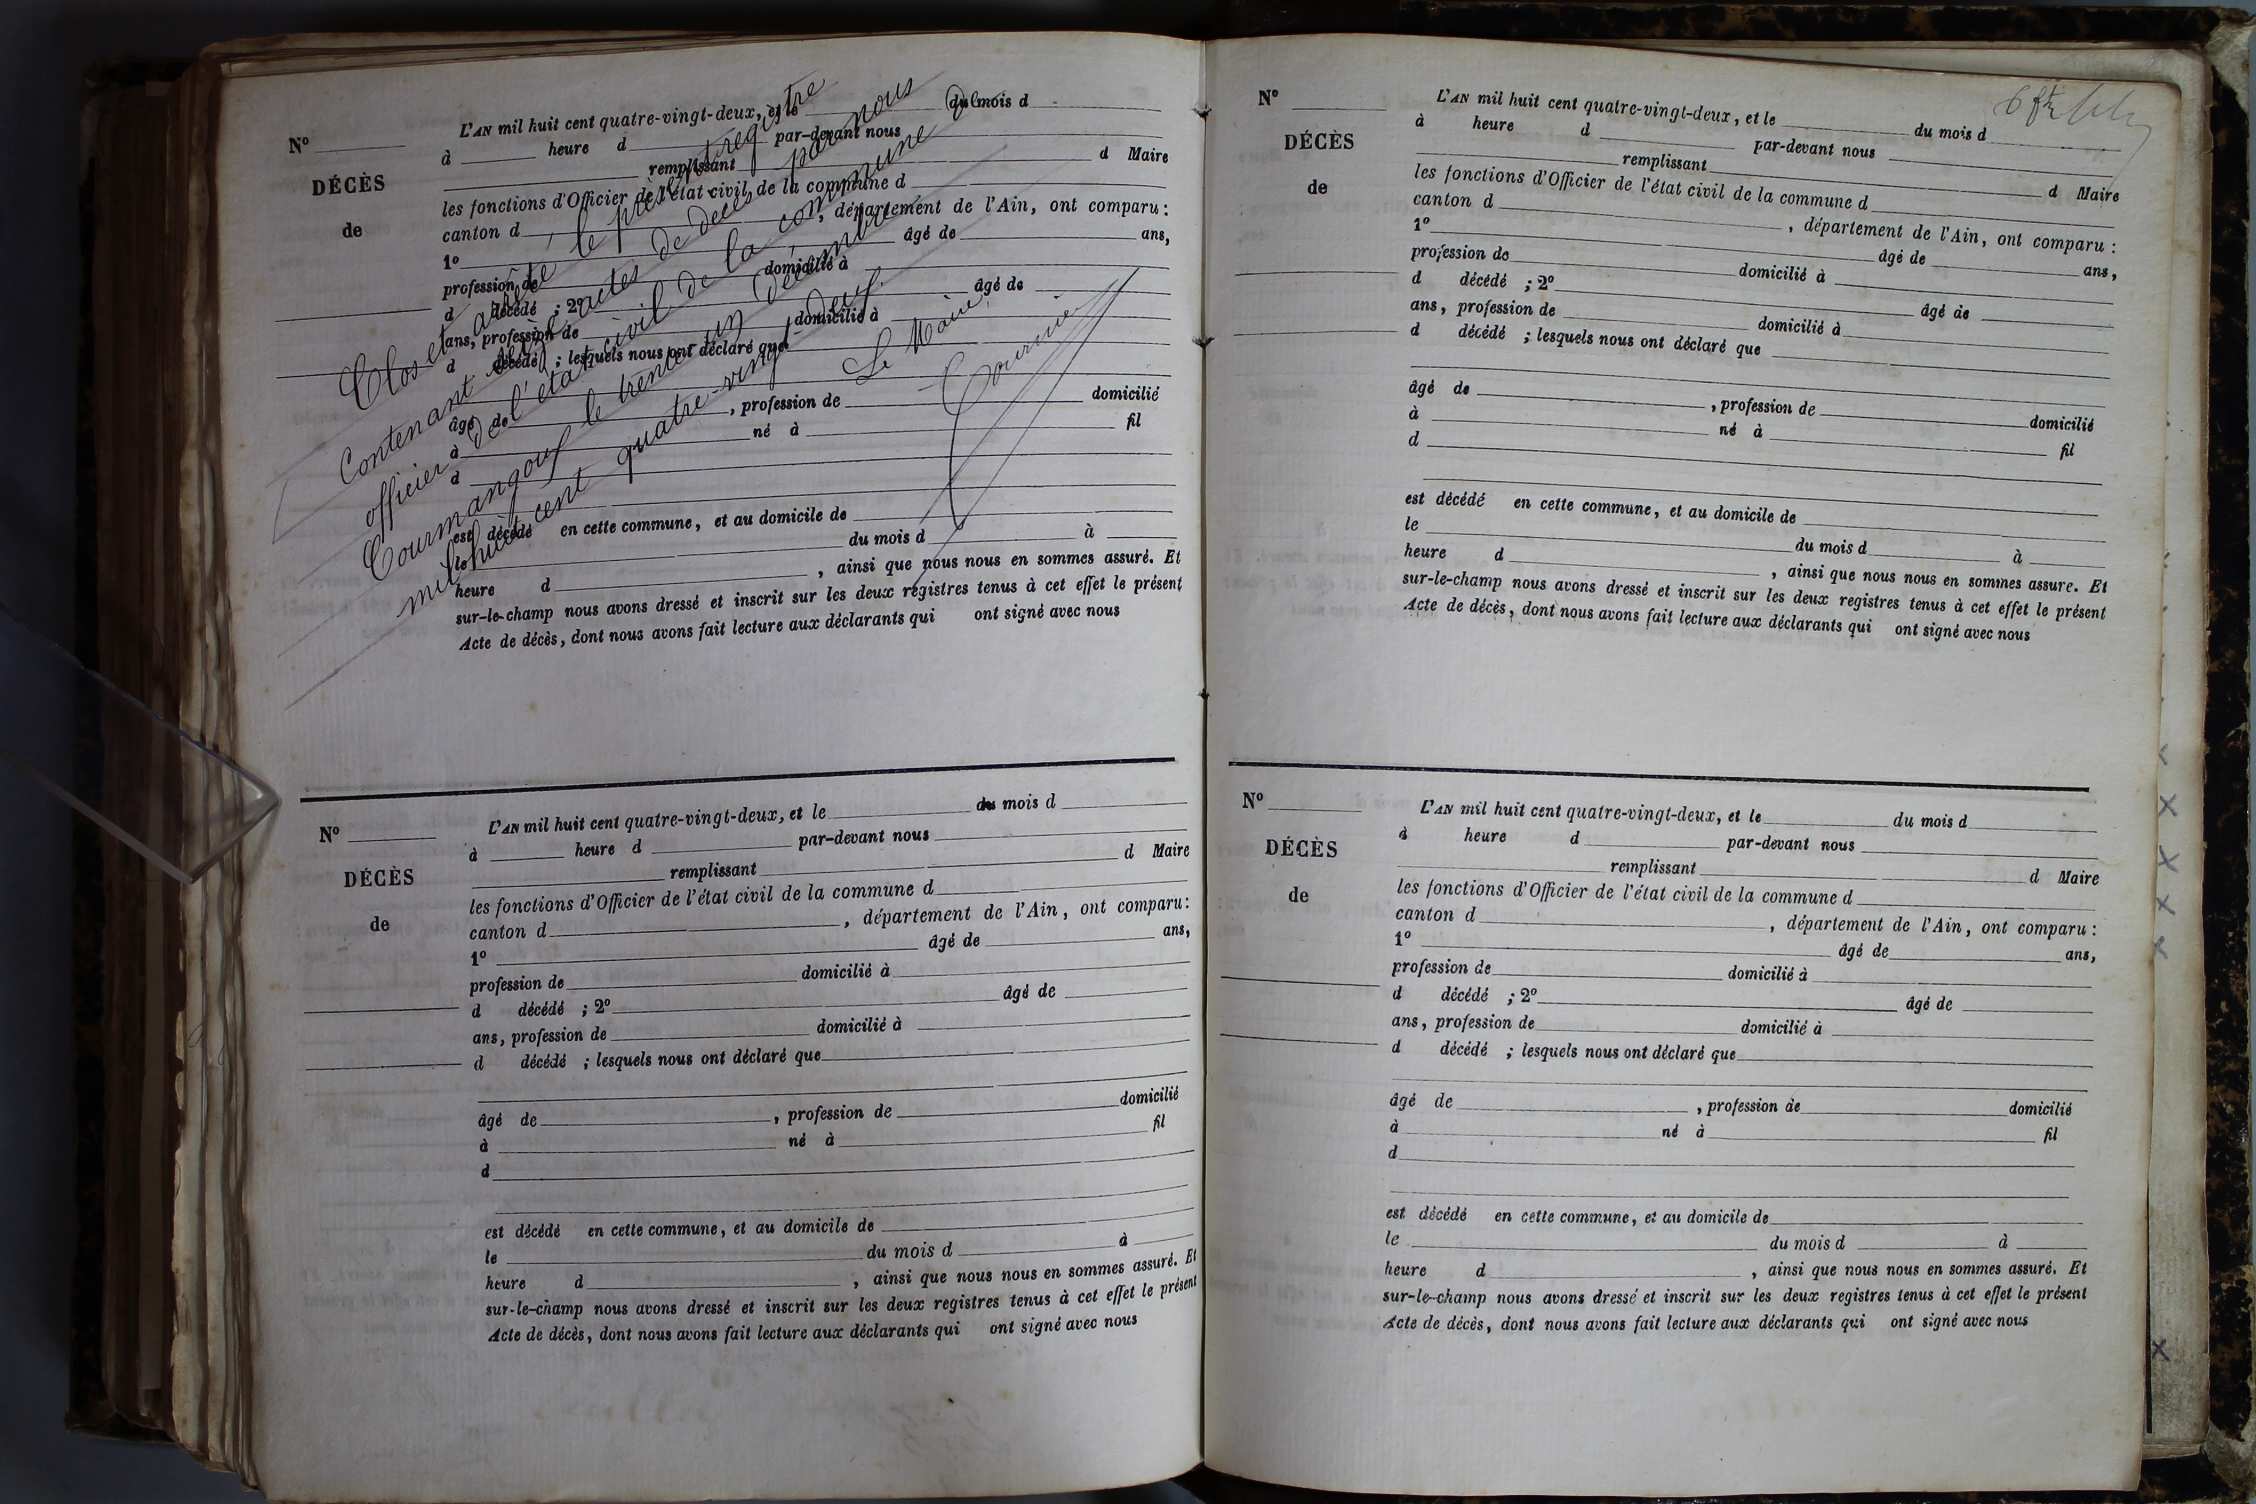 Nº
DÉCÈS
de
L'AN mil huit cent quatre-vingt-deux, et le du mois d
à heure d par-devant nous
remplissant d Maire
les fonctions d'Officier de l'état civil de la commune d
canton d , département de l'Ain, ont comparu :
1º âgé de ans,
profession de domicilié à
d décédé ; 2º âgé de
ans, profession de domicilié à
d décédé ; lesquels nous ont déclaré que
âgé de , profession de domicilié
à né à fil
d
est décédé en cette commune, et au domicile de
le du mois d à
heure d , ainsi que nous nous en sommes assuré. Et
sur-le-champ nous avons dressé et inscrit sur les deux registres tenus à cet effet le présent
Acte de décès, dont nous avons fait lecture aux déclarants qui ont signé avec nous
Clos et arrêté le présent registre
Contenant actes de décès par nous
officier de l'état civil de la commune De
Courmangoux le trente-un décembre
mil huit cent quatre-vingt deux.
Le Maire,
Nº
DÉCÈS
de
L'AN mil huit cent quatre-vingt-deux, et le du mois d
à heure d par-devant nous
remplissant d Maire
les fonctions d'Officier de l'état civil de la commune d
canton d , département de l'Ain, ont comparu :
1º âgé de ans,
profession de domicilié à
d décédé ; 2º âgé de
ans, profession de domicilié à
d décédé ; lesquels nous ont déclaré que
âgé de , profession de domicilié
à né à fil
d
est décédé en cette commune, et au domicile de
le du mois d à
heure d , ainsi que nous nous en sommes assuré. Et
sur-le-champ nous avons dressé et inscrit sur les deux registres tenus à cet effet le présent
Acte de décès, dont nous avons fait lecture aux déclarants qui ont signé avec nous
Nº
DÉCÈS
de
L'AN mil huit cent quatre-vingt-deux, et le du mois d
à heure d par-devant nous
remplissant d Maire
les fonctions d'Officier de l'état civil de la commune d
canton d , département de l'Ain, ont comparu :
1º âgé de ans,
profession de domicilié à
d décédé ; 2º âgé de
ans, profession de domicilié à
d décédé ; lesquels nous ont déclaré que
âgé de , profession de domicilié
à né à fil
d
est décédé en cette commune, et au domicile de
le du mois d à
heure d , ainsi que nous nous en sommes assure. Et
sur-le-champ nous avons dressé et inscrit sur les deux registres tenus à cet effet le présent
Acte de décès, dont nous avons fait lecture aux déclarants qui ont signé avec nous
Nº
DÉCÈS
de
L'AN mil huit cent quatre-vingt-deux, et le du mois d
à heure d par-devant nous
remplissant d Maire
les fonctions d'Officier de l'état civil de la commune d
canton d , département de l'Ain, ont comparu :
1º âgé de ans,
profession de domicilié à
d décédé ; 2º âgé de
ans, profession de domicilié à
d décédé ; lesquels nous ont déclaré que
âgé de , profession de domicilié
à né à fil
d
est décédé en cette commune, et au domicile de
le du mois d à
heure d , ainsi que nous nous en sommes assuré. Et
sur-le-champ nous avons dressé et inscrit sur les deux registres tenus à cet effet le présent
Acte de décès, dont nous avons fait lecture aux déclarants qui ont signé avec nous